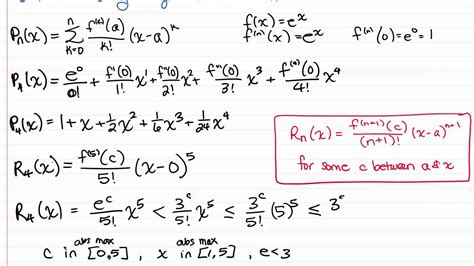 Pₙ(x) = Σₖ₌₀ⁿ f⁽ᵏ⁾(a)/k! (x-a)ᵏ
f(x) = eˣ
f⁽ⁿ⁾(x) = eˣ f⁽ⁿ⁾(0) = e⁰ = 1
P₄(x) = e⁰/0! + f'(0)/1! x¹ + f''(0)/2! x² + f'''(0)/3! x³ + f⁽⁴⁾(0)/4! x⁴
P₄(x) = 1 + x + 1/2 x² + 1/6 x³ + 1/24 x⁴
Rₙ(x) = f⁽ⁿ⁺¹⁾(c)/(n+1)! (x-a)ⁿ⁺¹
for some c between a & x
R₄(x) = f⁽⁵⁾(c)/5! (x-0)⁵
R₄(x) = eᶜ/5! x⁵ < 3ᶜ/5! x⁵ ≤ 3ᶜ/5! (5)⁵ ≤
abs max abs max
c in [0,5], x in [1,5], e<3